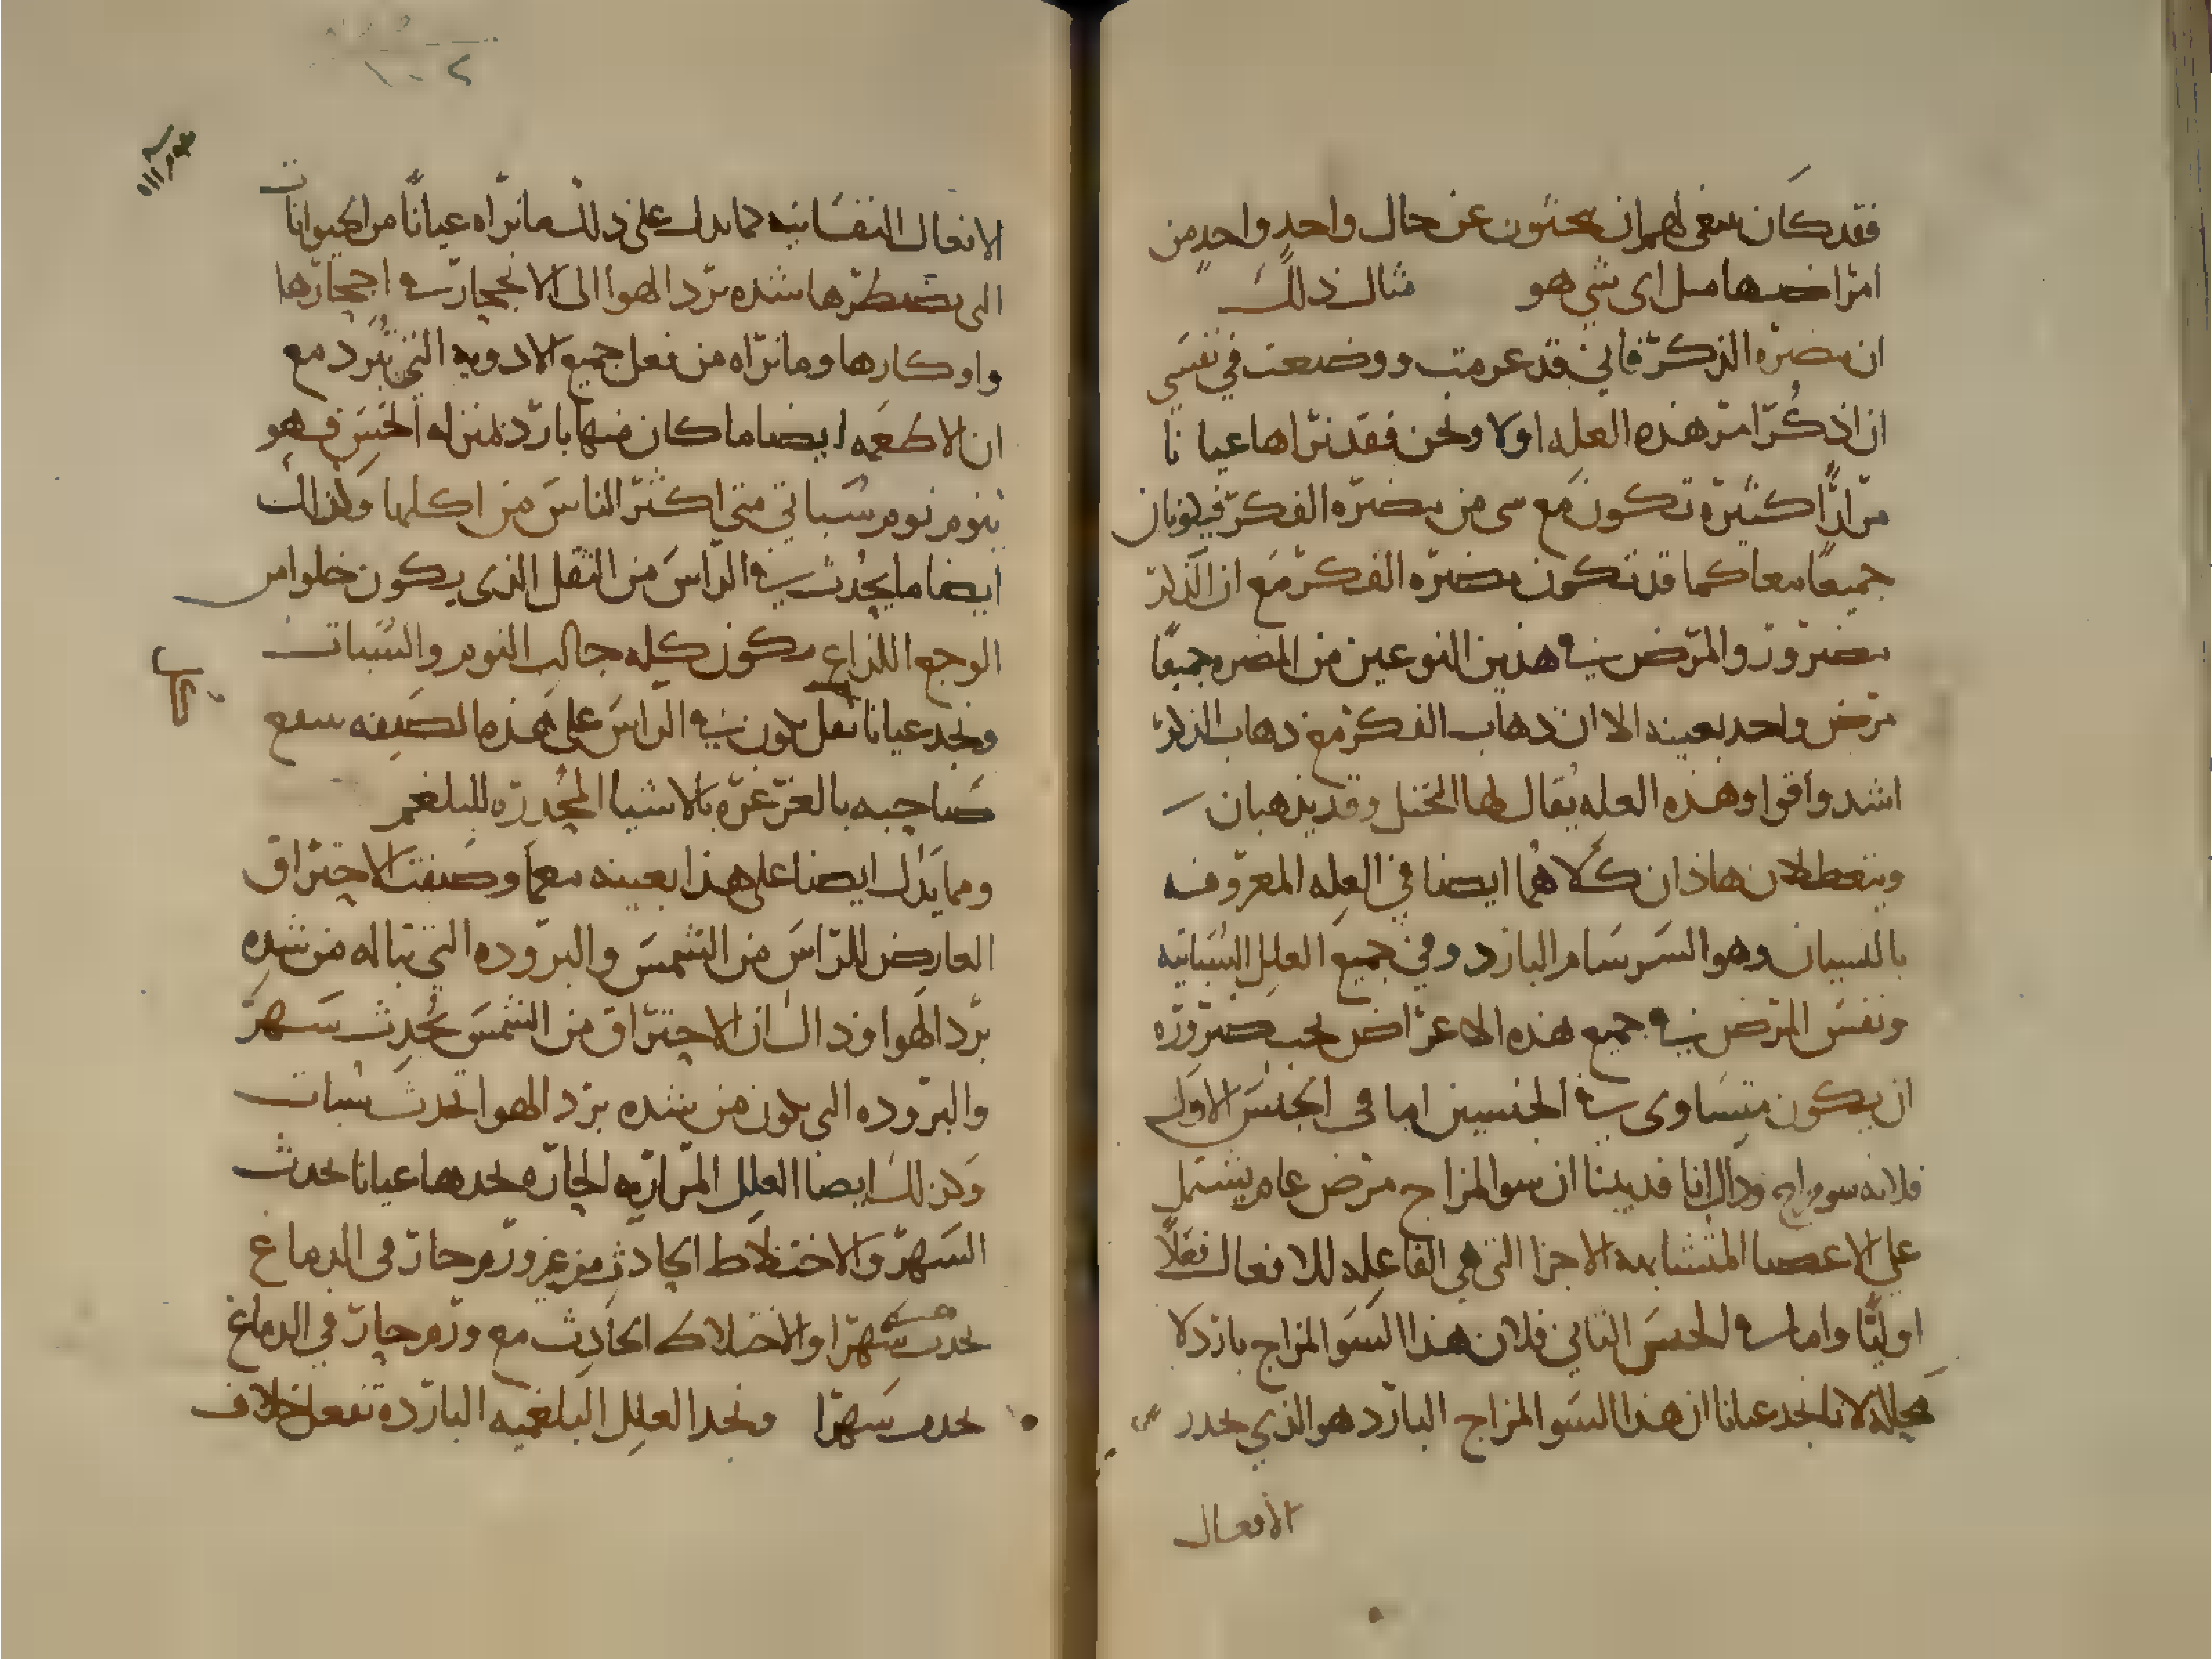 فقد كان ينبغي لهم ان يبحثون عن حال واحدٍ واحدٍ من
امراضها مثل اى شي هو مثال ذلك
ان مضرة الذكر فاني قد عزمت ووضعت في نفسي
ان اذكر امر هذه العله اولا ونحن فقد نراها عيانا
مرارًا كثيرة تكون مع شي من مضره الفكر فيكونان
جميعًا معا كما قد تكون مضره الفكر مع ان الذكر
مضرور والمرض في هذين النوعين من المضره جميعًا
مرض واحد بعينه الا ان ذهاب الفكر مع ذهاب الذكر
اشد واقوا وهذه العله يقال لها الخبل وقد يذهبان
ويتعطلان هاذان كلاهما ايضا في العله المعروفه
بالنسيان وهو السرسام البارد وفي جميع العلل السباتيه
ونفس المرض في جميع هذه الاعراض يجب ضرورة
ان يكون متساوى في الجنسين اما في الجنس الاول
فلانه سو مزاج وذاك انا قد بينا ان سو المزاج مرض عام يشتمل
على الاعضا المتشابهه الاجزا التي هي الفاعله للافعال فعلًا
اوليًا واما في الجنس الثاني فلان هذا السو المزاج بارد لا
محاله لانا نجد عيانا ان هذا السو المزاج البارد هو الذي يخدر
الافعال
١٠٢
الافعال النفسانيه كما يدل على ذلك ما نراه عيانًا من الحيوانات
التى يضطرها شده برد الهوا الى الانحجار في احجارها
واوكارها وما نراه من فعل جميع الادويه التي تبرد مع
ان الاطعمه ايضا ما كان منها بارد بمنزله الخس فهو
ينوم نوم سباتي متى اكثر الناس من اكلها وكذلك
ايضا ما يحدث في الراس من الثقل الذى يكون خلوا من
الوجع اللذاع يكون كله جالب النوم والسبات
ونجد عيانا ثقل يكون في الراس على هذه الصفه ينتفع
صاحبه بالغرغرة بالاشيا المحدره للبلغم
ومما يدل ايضا على هذا بعينه معما وصفت الاحتراق
العارض للراس من الشمس والبروده التي تناله من شده
برد الهوا وذاك ان الاحتراق من الشمس يحدث سهر
والبروده التى تكون من شده برد الهوا تحدث سبات
وكذلك ايضا العلل المراريه الحاره نجدها عيانا تحدث
السهر والاختلاط الحادث من غير ورم حار في الدماغ
تحدث سهرا والاختلاط الحادث مع ورم حار في الدماغ
تحدث سهرا ونجد العلل البلغميه البارده تفعل خلاف